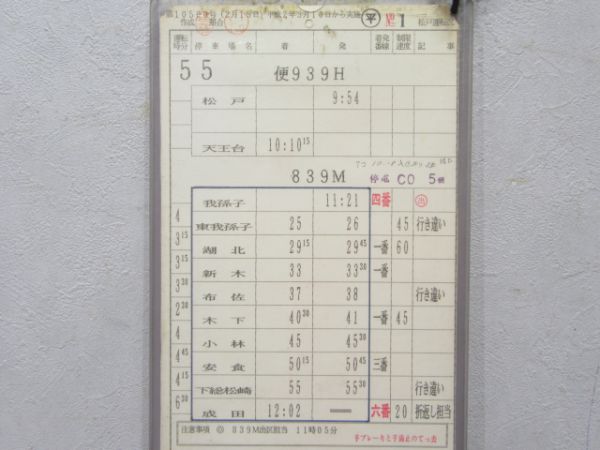 平成2年3月10日から実施 平 №1
停車場名 着 発 着発番線 制限速度 記事
55 便939H
松戸 9:54
天王台 10:10 15
839M 停名 CO 5
我孫子 11:21 四番 出
4
東我孫子 25 26 45 行き違い
3 15
湖北 29 15 29 45 一番 60
3 15
新木 33 33 30 一番
3 30
布佐 37 38 行き違い
2 30
木下 40 30 41 一番 45
4
小林 45 45 30
4 45
安食 50 15 50 45 三番
4 15
下総松崎 55 55 30 行き違い
6 30
成田 12:02 — 六番 20 折返し担当
注意事項 ◎ 839M出区担当 11時05分
手ブレーキと手歯止めてっ去